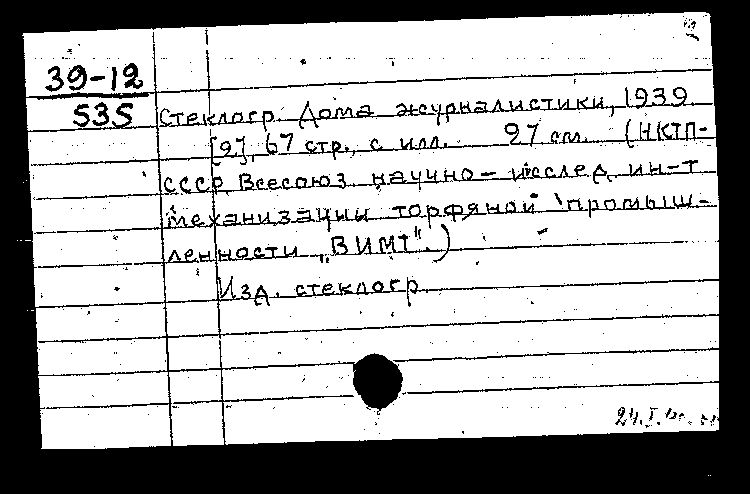 39-12
535
Стеклогр. Дома журналистики, 1939.
[2], 67 стр., с илл. 27 см. (НКТП-
СССР. Всесоюз. научно-исслед. ин-т
механизации торфяной промыш-
ленности „ВИМТ".)
Изд. стеклогр.
24.I.